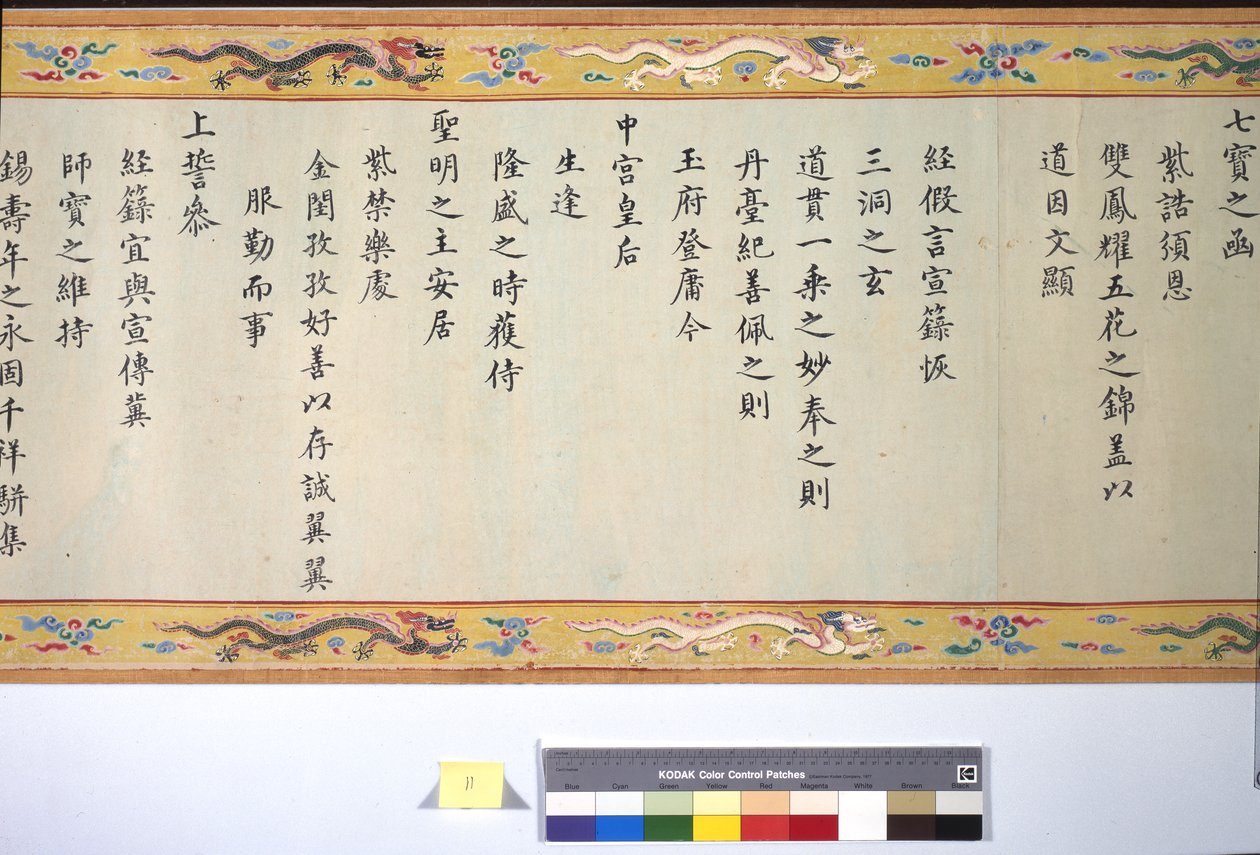 七寶之函
紫誥頒恩
雙鳳耀五花之錦盖以
道因文顯
経假言宣籙恢
三洞之玄
道貫一乗之妙奉之則
丹臺紀善佩之則
玉府登庸今
中宮皇后
生逢
隆盛之時獲侍
聖明之主安居
紫禁樂處
金闈孜孜好善以存誠翼翼
服勤而事
上誓叅
経籙宜與宣傳冀
師寶之維持
錫壽年之永固千祥駢集
11
KODAK Color Control Patches
©Eastman Kodak Company, 1977
Inches
Centimetres
Blue Cyan Green Yellow Red Magenta White Brown Black
Kodak